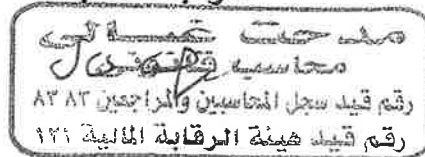 مدحت
محاسب قانوني
رقم قيد سجل المحاسبين والمراجعين ٨٣٨٣
رقم قيد هيئة الرقابة المالية ١٢١